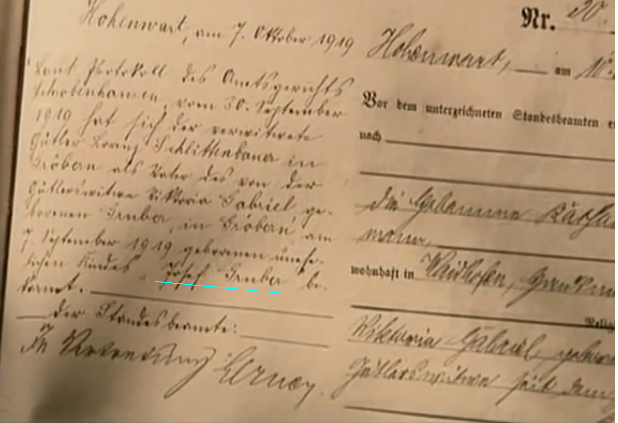 Hohenwart, am 7. Oktober 1919
Laut Protokoll des Amtsgerichts
Schrobenhausen, vom 30. September
1919 hat sich der verwitwete
Gütler Lorenz Schlittenbauer in
Gröbern als Vater des von der
Gütlerswitwe Viktoria Gabriel ge-
borenen Gruber, in Gröbern am
7. September 1919 geborenen unehe-
lichen Kindes "Josef Gruber" be-
kannt.
Der Standesbeamte:
In Vertretung
Nr. 30.
Hohenwart, am 10.
Vor dem unterzeichneten Standesbeamten
nach
die Hebamme
wohnhaft in Waidhofen,
Viktoria Gabriel,
Gütlerswitwe seit dem